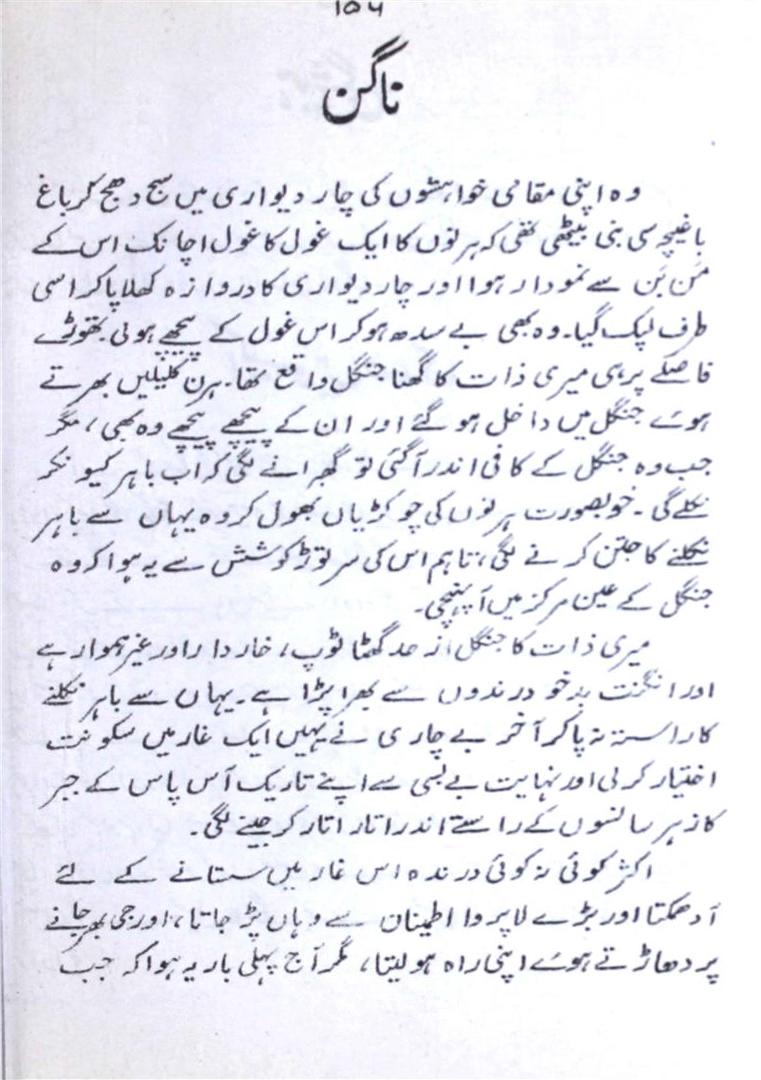 ناگن
وہ اپنی مقامی خواہشوں کی چار دیواری میں سج دھج کر باغ
باغیچہ سی بنی بیٹھی تھی کہ ہرنوں کا ایک غول کا غول اچانک اس کے
من بَن سے نمودار ہوا اور چار دیواری کا دروازہ کھلا پا کر اسی
طرف لپک گیا۔ وہ بھی بے سدھ ہو کر اس غول کے پیچھے ہولی۔ تھوڑے
فاصلے پر ہی میری ذات کا گھنا جنگل واقع تھا۔ ہرن کلیلیں بھرتے
ہوئے جنگل میں داخل ہو گئے اور ان کے پیچھے پیچھے وہ بھی، مگر
جب وہ جنگل کے کافی اندر آ گئی تو گھبرانے لگی کہ اب باہر کیونکر
نکلے گی۔ خوبصورت ہرنوں کی چوکڑیاں بھول کر وہ یہاں سے باہر
نکلنے کا جتن کرنے لگی، تاہم اس کی سر توڑ کوشش سے یہ ہوا کہ وہ
جنگل کے عین مرکز میں آ پہنچی۔
میری ذات کا جنگل از حد گھٹا ٹوپ، خاردار اور غیر ہموار ہے
اور انگنت بدخو درندوں سے بھرا پڑا ہے۔ یہاں سے باہر نکلنے
کا راستہ نہ پا کر آخر بے چاری نے یہیں ایک غار میں سکونت
اختیار کر لی اور نہایت بے بسی سے اپنے تاریک آس پاس کے جبر
کا زہر سانسوں کے راستے اندر اتار اتار کر جینے لگی۔
اکثر کوئی نہ کوئی درندہ اس غار میں سستانے کے لئے
آ دھمکتا اور بڑے لاپروا اطمینان سے وہاں پڑ جاتا، اور جی بھر جانے
پر دھاڑتے ہوئے اپنی راہ ہو لیتا، مگر آج پہلی بار یہ ہوا کہ جب